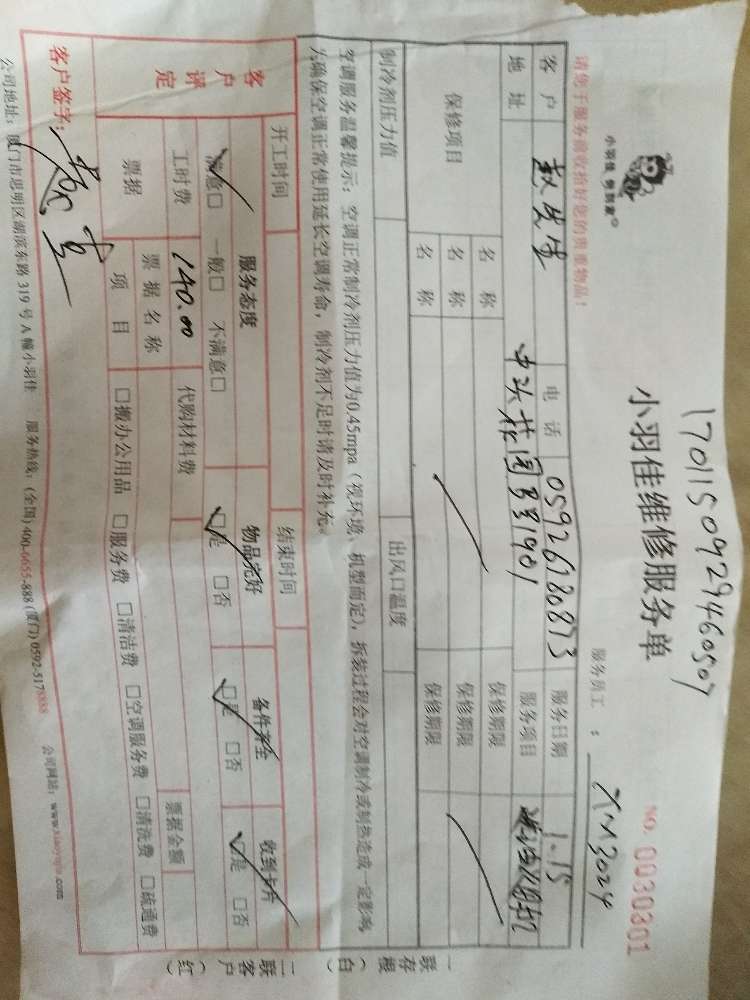 1701150929460507
小羽佳 努到家
小羽佳维修服务单
NO. 0030301
服务员工：XM3024
请您于服务前收拾好您的贵重物品！
客户 赵先生 电话 05926180873 服务日期 1.15
地址 服务项目
保修项目 名称 保修期限
名称 保修期限
名称 保修期限
制冷剂压力值 出风口温度
空调服务温馨提示：空调正常制冷剂压力值为0.45mpa（视环境、机型而定），拆装过程会对空调制冷或制热造成一定影响
为确保空调正常使用延长空调寿命，制冷剂不足时请及时补充。
开工时间 结束时间
客户评定 服务态度 物品完好 备件齐全 收到卡片
满意□ 一般□ 不满意□ □是 □否 □是 □否 □是 □否
工时费 140.00 代购材料费
票据 票据名称 票据金额
项目 □搬办公用品 □服务费 □清洁费 □空调服务费 □清洗费 □疏通费
客户签字：
公司地址：厦门市思明区湖滨东路319号A幢小羽佳 服务热线：(全国) 400-6655-888 (厦门) 0592-5178888 公司网站：www.xiaoyujia.com
一联存根（白）
二联客户（红）